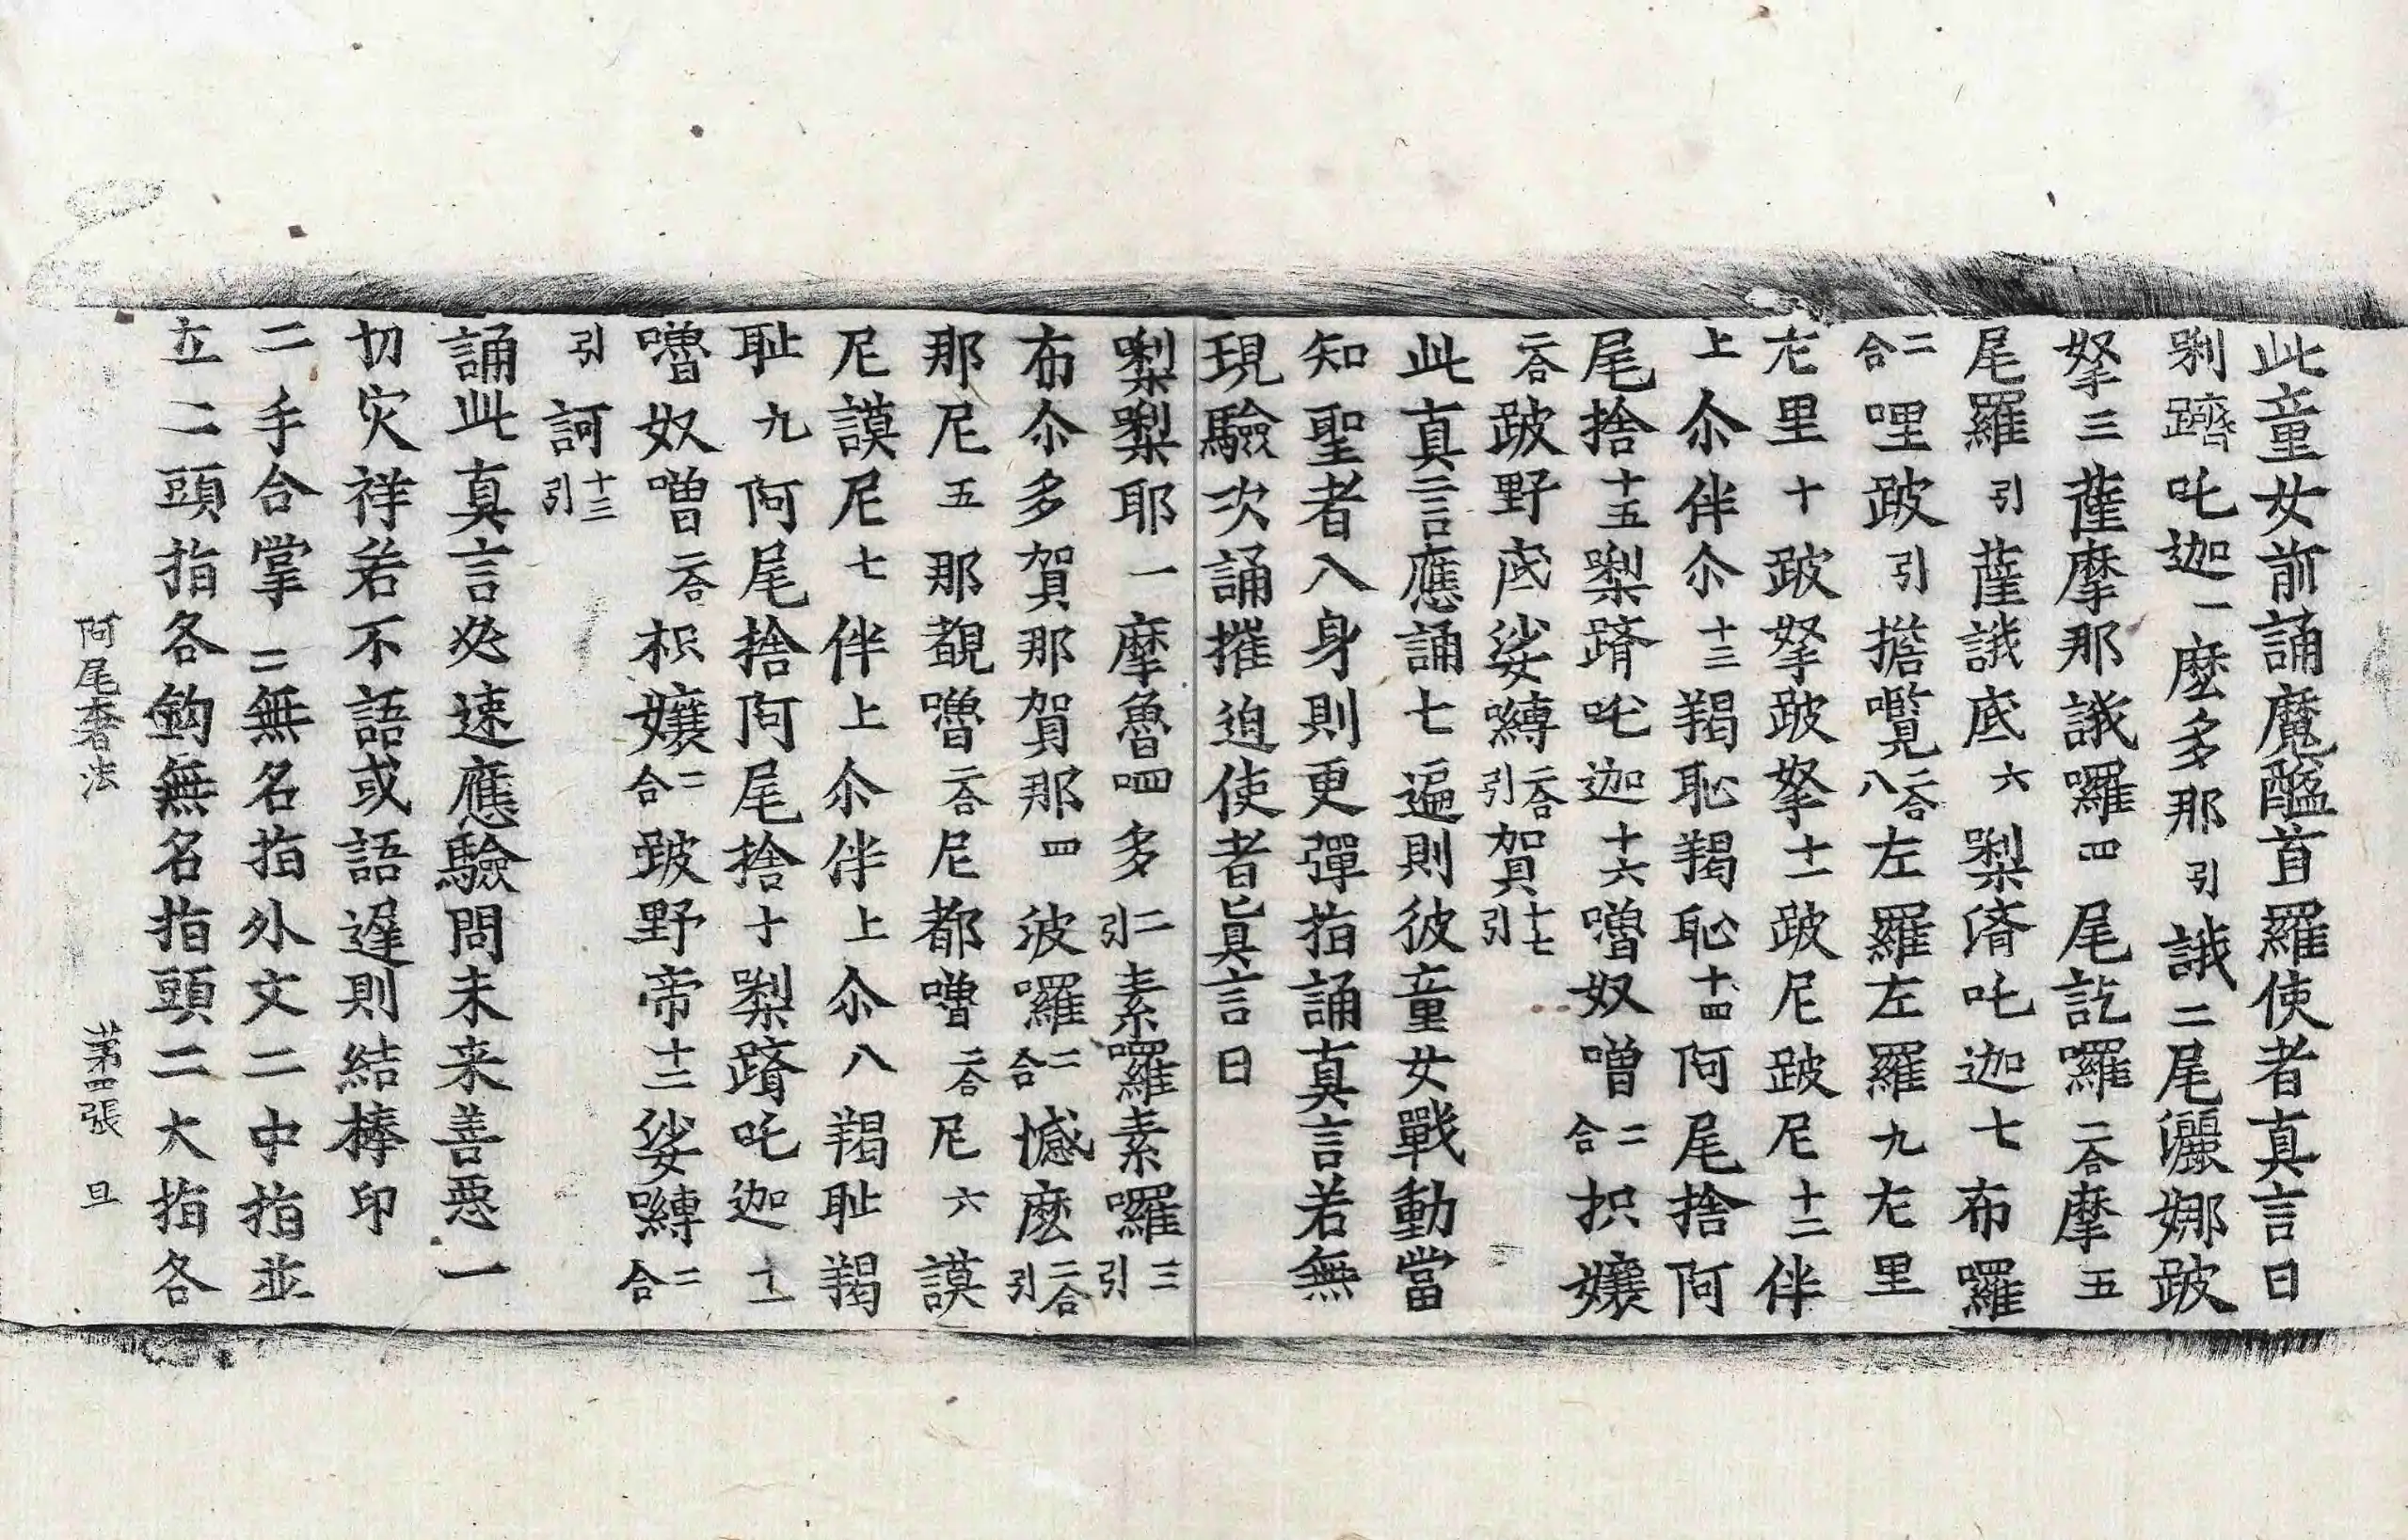 此童女前誦魔醯首羅使者真言曰
剁躋吒迦一麽多那引誐二尾灑娜跛
拏三薩摩那誐囉四尾訖囉二合摩五
尾羅引薩誐底六梨濟吒迦七布囉
二合哩跛引擔嚂二合八左羅左羅九左里
左里十跛拏跛拏十一跛尼跛尼十二伴
上尒伴尒十三羯恥羯恥十四阿尾捨阿
尾捨十五梨躋吒迦十六嚕奴嚕二合枳孃
二合跛野底娑嚩二合引賀十七引
此真言應誦七遍則彼童女戰動當
知聖者入身則更彈指誦真言若無
現驗次誦摧迫使者真言曰
梨梨耶一摩魯四多二引素囉素囉三引
布尒多賀那賀那四波囉二合憾麽二合引
那尼五那覩嚕二合尼都嚕二合尼六謨
尼謨尼七伴上尒伴上尒八羯耻羯
耻九阿尾捨阿尾捨十梨躋吒迦十一
嚕奴嚕二合枳孃二合跛野帝十二娑嚩二合
引訶十三引
誦此真言必速應驗問未来善惡一
切灾祥若不語或語遲則結棒印
二手合掌二無名指外交二中指並
立二頭指各鉤無名指頭二大指各
阿尾奢法 第四張 旦